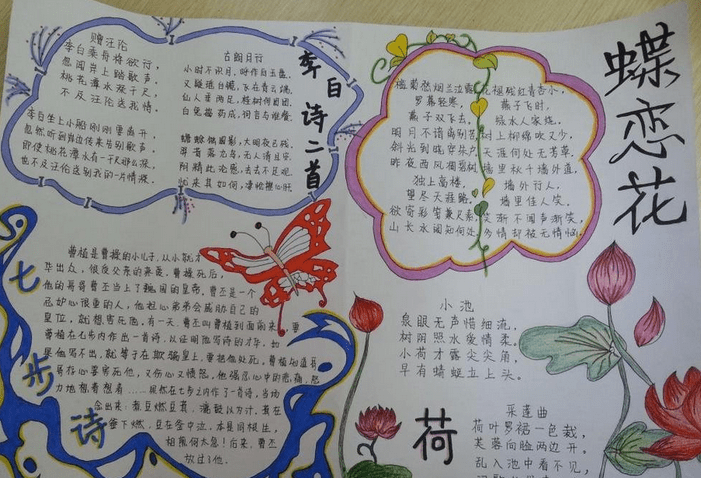 赠汪伦
李白乘舟将欲行,
忽闻岸上踏歌声。
桃花潭水深千尺,
不及汪伦送我情。
李白坐上小船刚刚要离开,
忽然听到岸边传来告别歌声。
即使桃花潭水有一千尺那么深,
也不及汪伦送别我的一片情深。
古朗月行
小时不识月,呼作白玉盘。
又疑瑶台镜,飞在青云端。
仙人垂两足,桂树何团团。
白兔捣药成,问言与谁餐。
蟾蜍蚀圆影,大明夜已残。
羿昔落九乌,天人清且安。
阴精此沦惑,去去不足观。
忧来其如何,凄怆摧心肝。
李白诗二首
蝶恋花
槛菊愁烟兰泣露
罗幕轻寒,
燕子双飞去。
明月不谙离别苦
斜光到晓穿朱户
昨夜西风凋碧树
独上高楼,
望尽天涯路。
欲寄彩笺兼尺素
山长水阔知何处
花褪残红青杏小,
燕子飞时,
绿水人家绕。
枝上柳绵吹又少,
天涯何处无芳草。
墙里秋千墙外道,
墙外行人,
墙里佳人笑。
笑渐不闻声渐笑,
多情却被无情恼。
七步诗
曹植是曹操的小儿子,从小就才
华出众,很受父亲的亲爱。曹操死后,
他的哥哥曹丕当上了魏国的皇帝。曹丕是一个
忌妒心很重的人,他担心弟弟会威胁自己的
皇位,就想害死他。有一天,曹丕叫曹植到面前来,要
曹植在七步内作出一首诗,以证明他写诗的才华。如
果他写不出,就等于在欺骗皇上,要把他处死。曹植知道哥
哥存心要害死他,又伤心又愤怒。他强忍心中的悲痛,努
力地想着想着……果然在七步之内作了一首诗,当场
念出来:煮豆燃豆萁,漉豉以为汁。萁在
釜下燃,豆在釜中泣。本是同根生,
相煎何太急!后来,曹丕
放过了他。
小池
泉眼无声惜细流,
树阴照水爱情柔。
小荷才露尖尖角,
早有蜻蜓立上头。
荷
采莲曲
荷叶罗裙一色裁,
芙蓉向脸两边开。
乱入池中看不见,